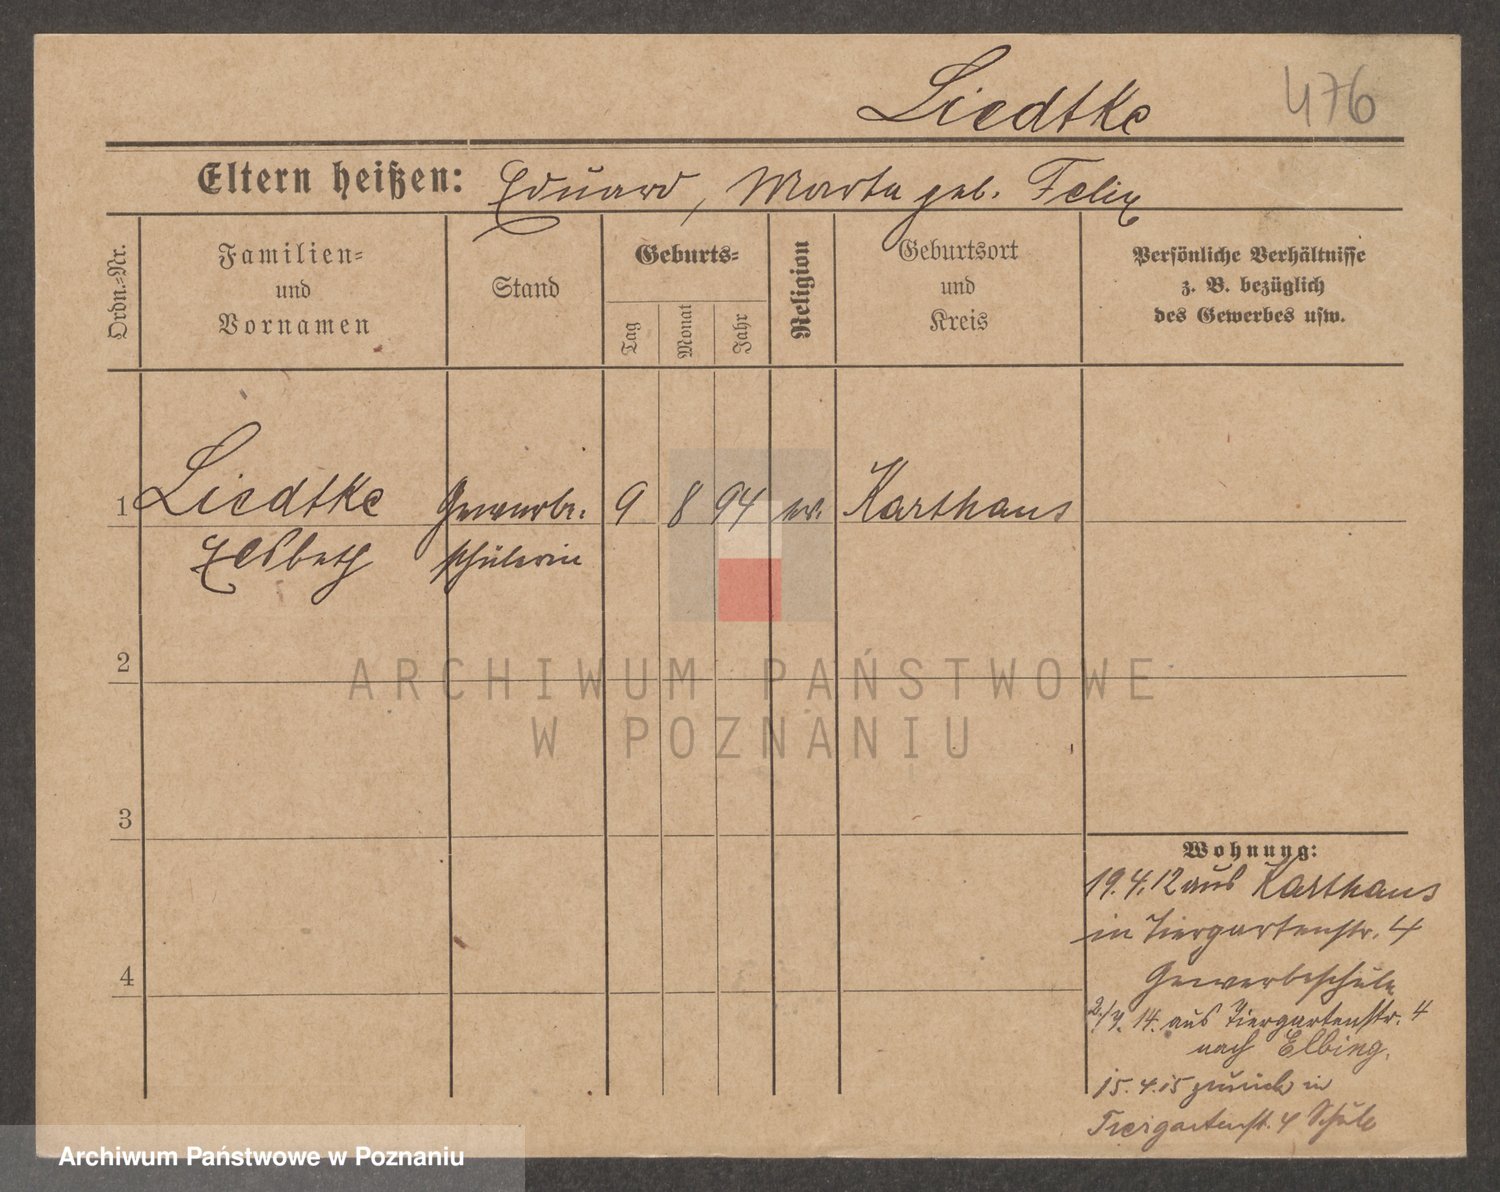 Liedtke
476
Eltern heißen: Eduard, Marta geb. Felix
Ordn.=Nr.
Familien=
und
Vornamen
Stand
Geburts=
Tag
Monat
Jahr
Religion
Geburtsort
und
Kreis
Persönliche Verhältnisse
z. B. bezüglich
des Gewerbes usw.
1 Liedtke Gewerbe. 9 8 94 ev. Karthaus
Elsbeth schülerin
2
ARCHIWUM PAŃSTWOWE
W POZNANIU
3
Wohnung:
19.4.12 aus Karthaus
in Tiergartenstr. 4
Gewerbeschule
4
2./4. 14. aus Tiergartenstr. 4
nach Elbing.
15.4.15 zurück in
Tiergartenst. 4 Schule
Archiwum Państwowe w Poznaniu